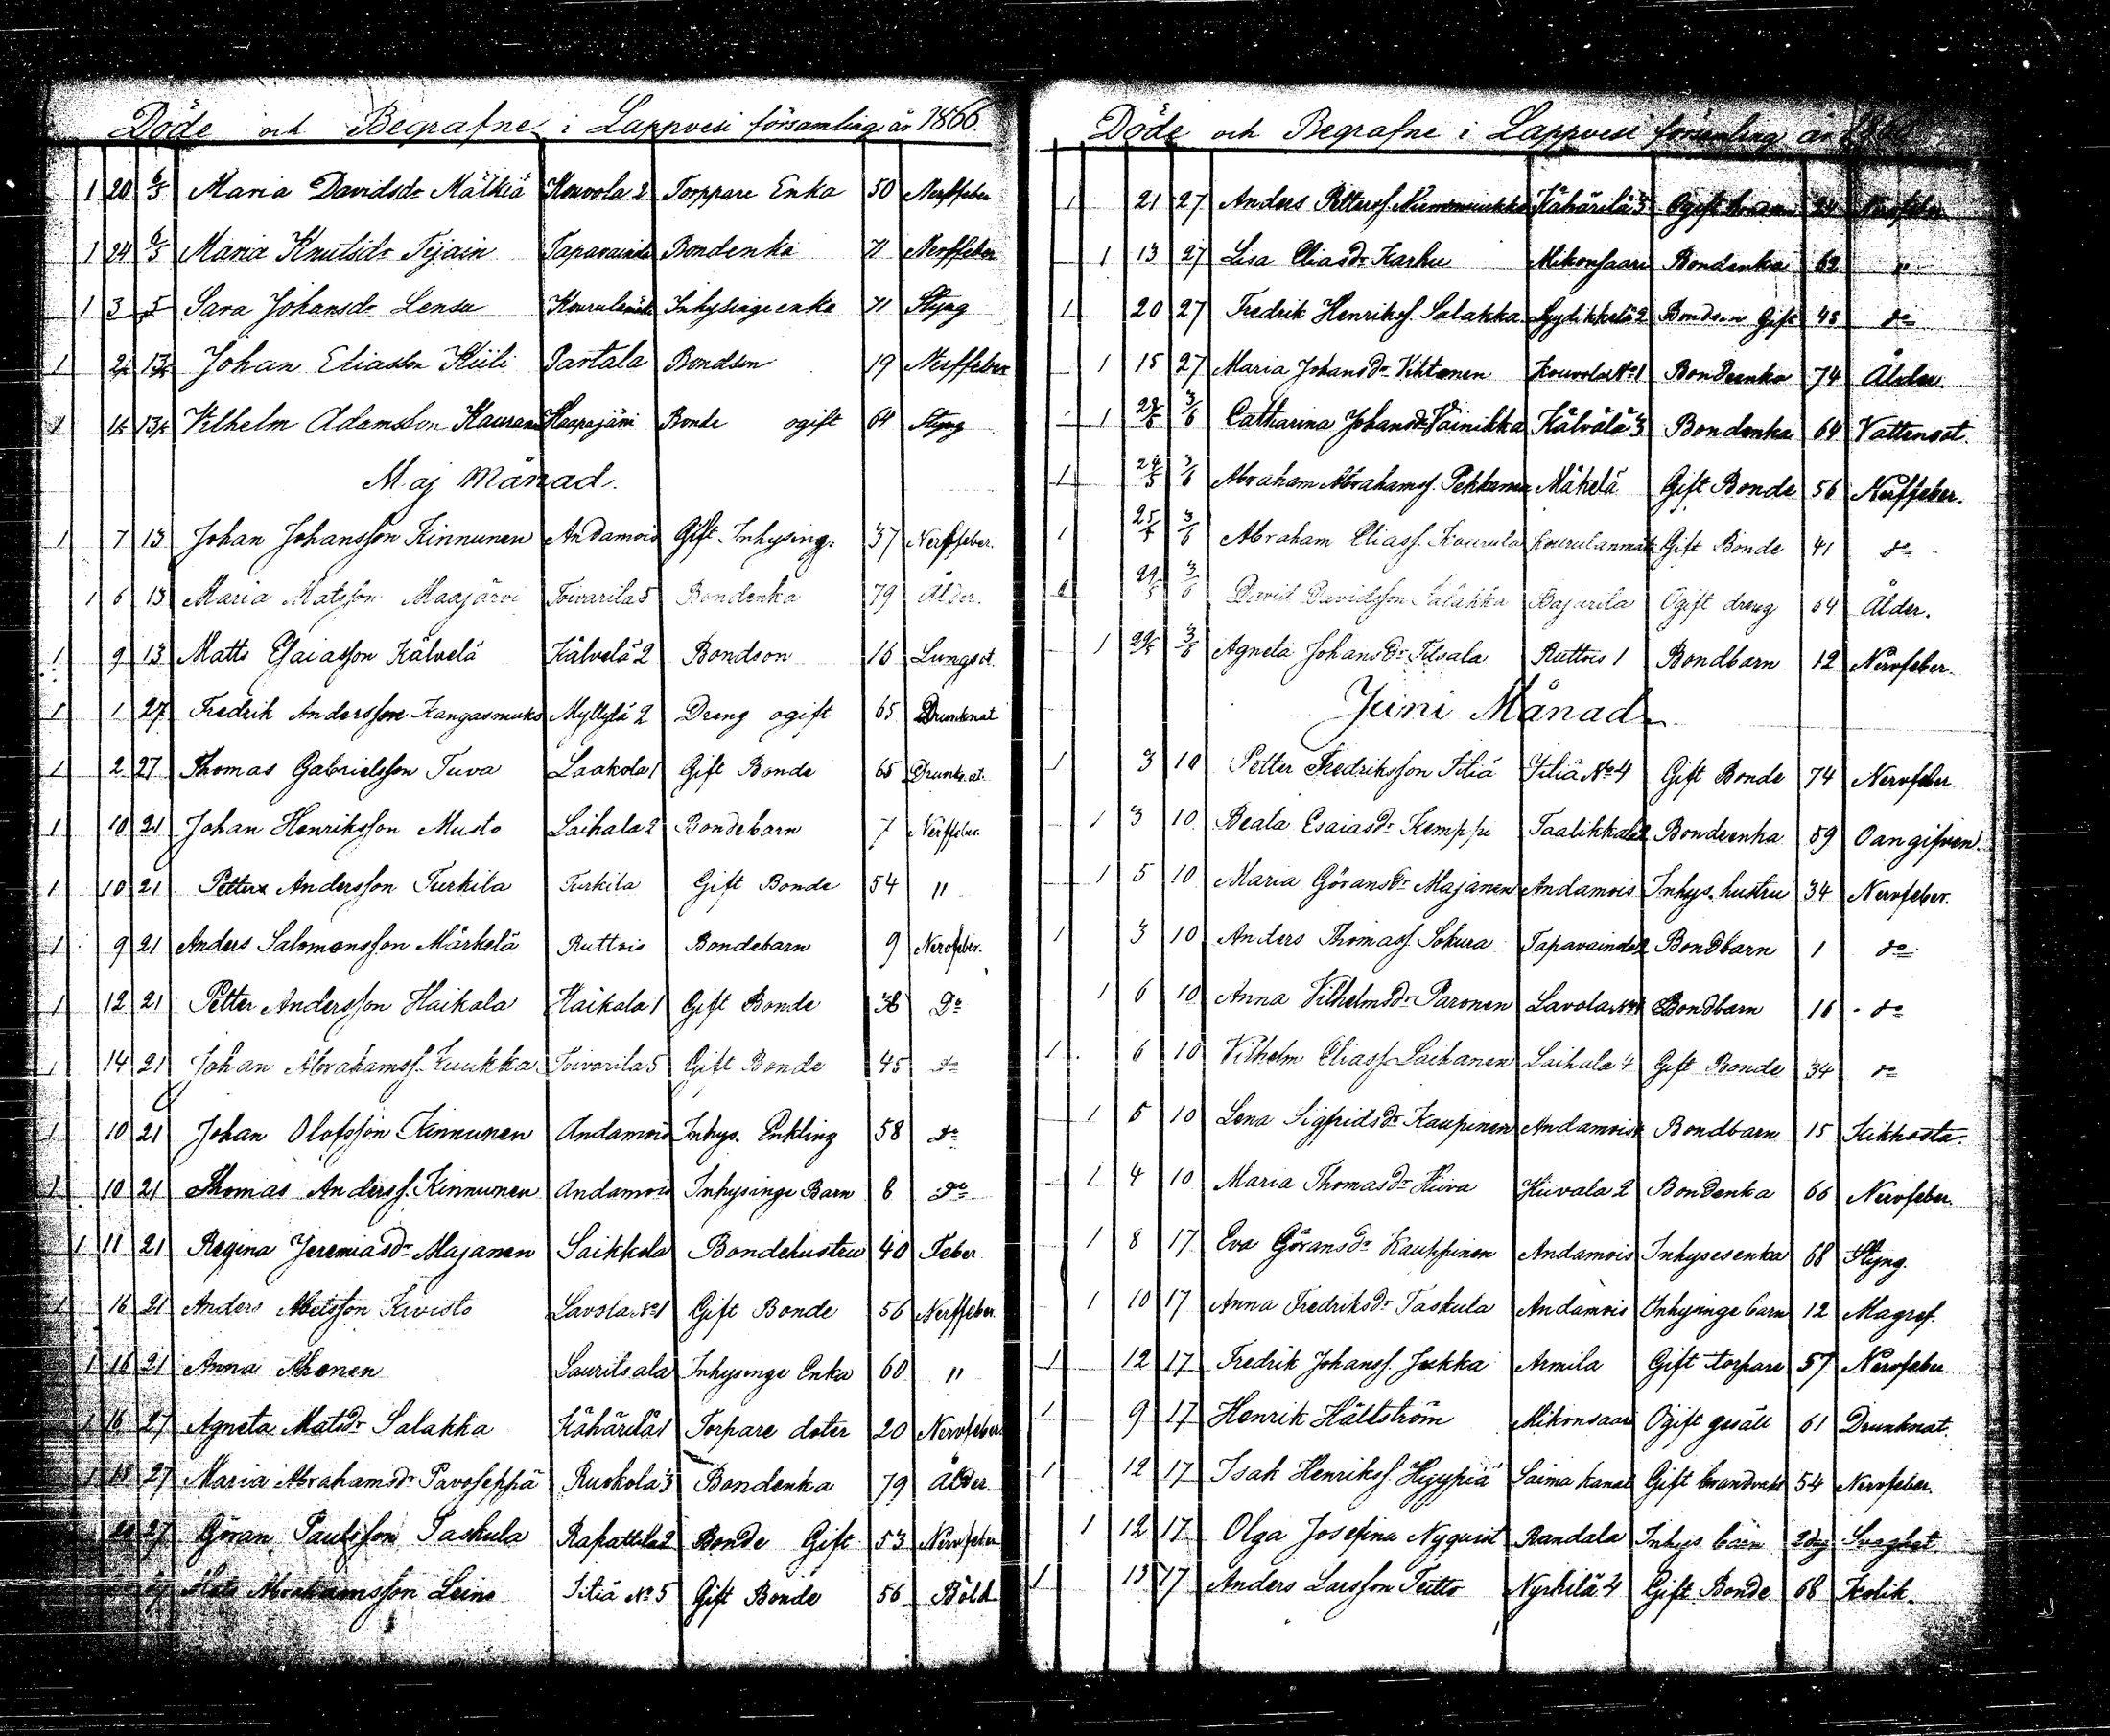 Döde och Begrafne i Lappvesi församling år 1866
1 20 6/5 Maria Davidsdr Mälkiä Kouvola 2 Torppare Enka 50 Nerffeber
1 24 6/5 Maria Knutsdr Tijain Tapavainola Bondenka 71 Nerffeber
1 3 5 Sara Johansdr Lensu Kourulanmäki Inhysinge enka 71 Styng
1 13/5 Johan Eliasson Kiili Partala Bondson 19 Nerffeber
1 13/5 Vilhelm Adamsson Kauranen Haapajärvi Bonde ogift 64 Styng
Maj Månad.
1 7 13 Johan Johansson Kinnunen Andamois Gift Inhysing. 37 Nerffeber.
1 6 13 Maria Matsson Maajärvi Toivarila 5 Bondenka 79 Ålder.
1 9 13 Matts Esaiasson Kälvelä Kälvelä 2 Bondson 16 Lungsot.
1 1 27 Fredrik Andersson Kangasmuko Myllylä 2 Dreng ogift 65 Drunknat
1 2 27 Thomas Gabrielsson Tuva Laakola 1 Gift Bonde 65 Drunkn.at.
1 10 21 Johan Henriksson Musto Laihala 2 Bondebarn 7 Nerffeber.
1 10 21 Petter Andersson Turkila Turkila Gift Bonde 54 "
1 9 21 Anders Salomonsson Märkelä Ruttois Bondebarn 9 Nervfeber.
1 12 21 Petter Andersson Haikala Haikala 1 Gift Bonde 36 Do
1 14 21 Johan Abrahamss. Kuukka Toivarila 5 Gift Bonde 45 do
1 10 21 Johan Olofsson Kinnunen Andamois Inhys. Enkling 58 do
1 10 21 Thomas Anderss. Kinnunen Andamois Inhysinge Barn 8 do
1 11 21 Regina Jeremiasdr Majanen Saikkola Bondehustru 40 Feber
1 16 21 Anders Abelsson Kivisto Lavola No 1 Gift Bonde 56 Nerffeber.
1 16 21 Anna Ahonen Lauritsala Inhysinge Enka 60 "
1 16 27 Agneta Matsdr Salakka Kähärilä 1 Torpare doter 20 Nervfeber
1 18 27 Maria Abrahamsdr Pavoseppä Ruskola 3 Bondenka 79 Ålder.
20 27 Göran Paulsson Taskula Rapattila 2 Bonde Gift 53 Nervfeber
27 Mats Abrahamsson Leino Tiliä No 5 Gift Bonde 56 Böld
Döde och Begrafne i Lappvesi församling år 186
1 21 27 Anders Petterss. Kähärilä 3 Ogift 24 Nervfeber
1 13 27 Lisa Eliasdr Karhu Mikonsaari Bondenka 62 "
1 20 27 Fredrik Henrikss. Salakka Lyydikkälä 2 Bondson Gift 48 do
1 15 27 Maria Johansdr Vihtonen Kouvola No 1 Bondeenka 74 Ålder.
1 28/5 3/6 Catharina Johansdr Väinikka Kälvälä 3 Bondenka 64 Vattensot.
1 24/5 3/6 Abraham Abrahamss. Pekkanen Mäkelä Gift Bonde 56 Nerffeber.
1 25/5 3/6 Abraham Eliass. Kourula Kourulanmäki Gift Bonde 41 do
1 29/5 3/6 David Davidsson Salakka Bajarila Ogift dreng 64 Ålder.
1 29/5 3/6 Agneta Johansdr Tilsala Ruttois 1 Bondbarn 12 Nervfeber.
Juni Månad
1 3 10 Petter Fredriksson Tiliä Tiliä No 4 Gift Bonde 74 Nervfeber.
1 3 10 Beata Esaiasdr Kemppi Taalikkala 2 Bondeenka 59 Oangifven.
1 5 10 Maria Göransdr Majanen Andamois Inhys. hustru 34 Nervfeber.
1 3 10 Anders Thomass. Sokura Tapavainola 2 Bondbarn 1 do
1 6 10 Anna Vilhelmsdr Paronen Lavola Bondbarn 16 do
1 6 10 Vilhelm Eliass. Laihanen Laihala 4 Gift Bonde 34 do
1 5 10 Lena Sigfridsdr Kaupinen Andamois Bondbarn 15 Kikhosta.
1 4 10 Maria Thomasdr Hiiva Hiivala 2 Bondenka 66 Nervfeber.
1 8 17 Eva Göransdr Kauppinen Andamois Inhysesenka 68 Styng.
1 10 17 Anna Fredriksdr Taskula Andamois Inhysinge barn 12 Magref.
1 12 17 Fredrik Johanss. Jukka Armila Gift torpare 57 Nervfeber.
1 9 17 Henrik Hällström Mikonsaari Ogift gesäll 61 Drunknat.
1 12 17 Isak Henrikss. Hyypiä Saima Kanal Gift brandvakt 54 Nervfeber.
1 12 17 Olga Josefina Nyquist Randala Inhys. barn 2 dag Svaghet.
1 13 17 Anders Larsson Teitto Nyrhilä 4 Gift Bonde 68 Kolik.